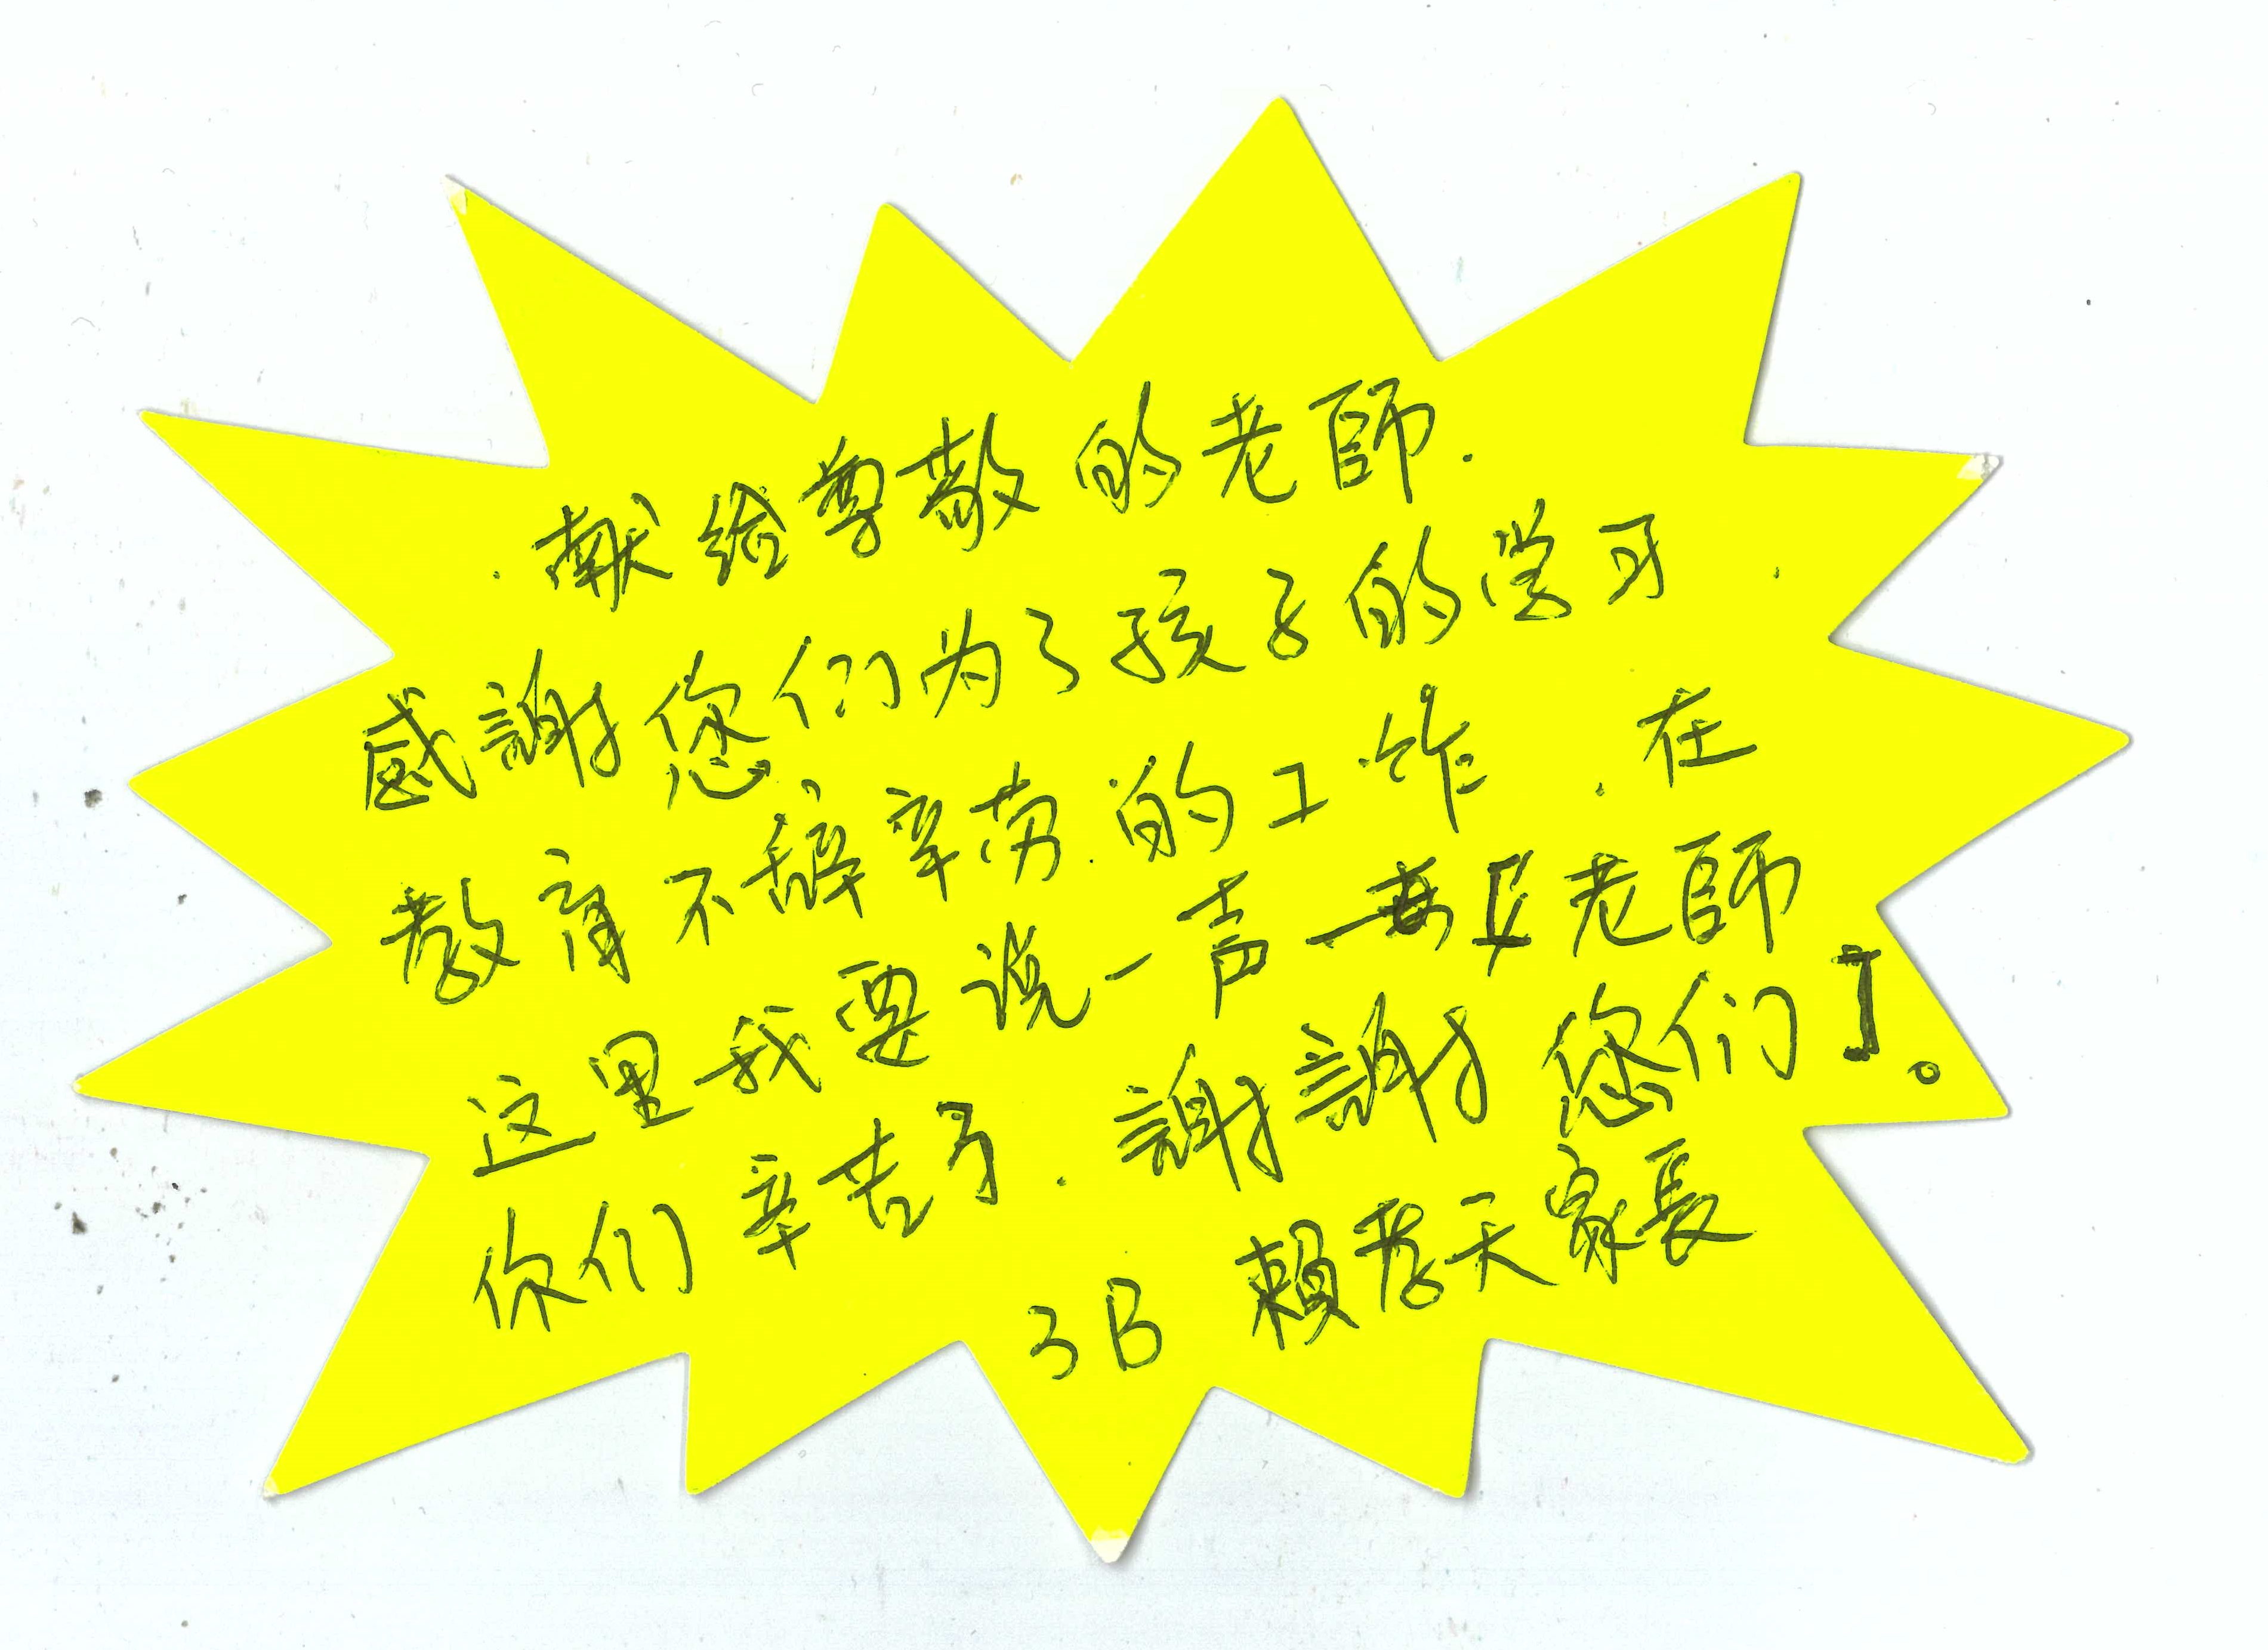 献给尊敬的老師.
感謝您们为了孩子的学习
教育不辞辛劳的工作.在
这里我要说一声 [老師
你们辛苦了.謝謝您们]。
3B 賴 天家長